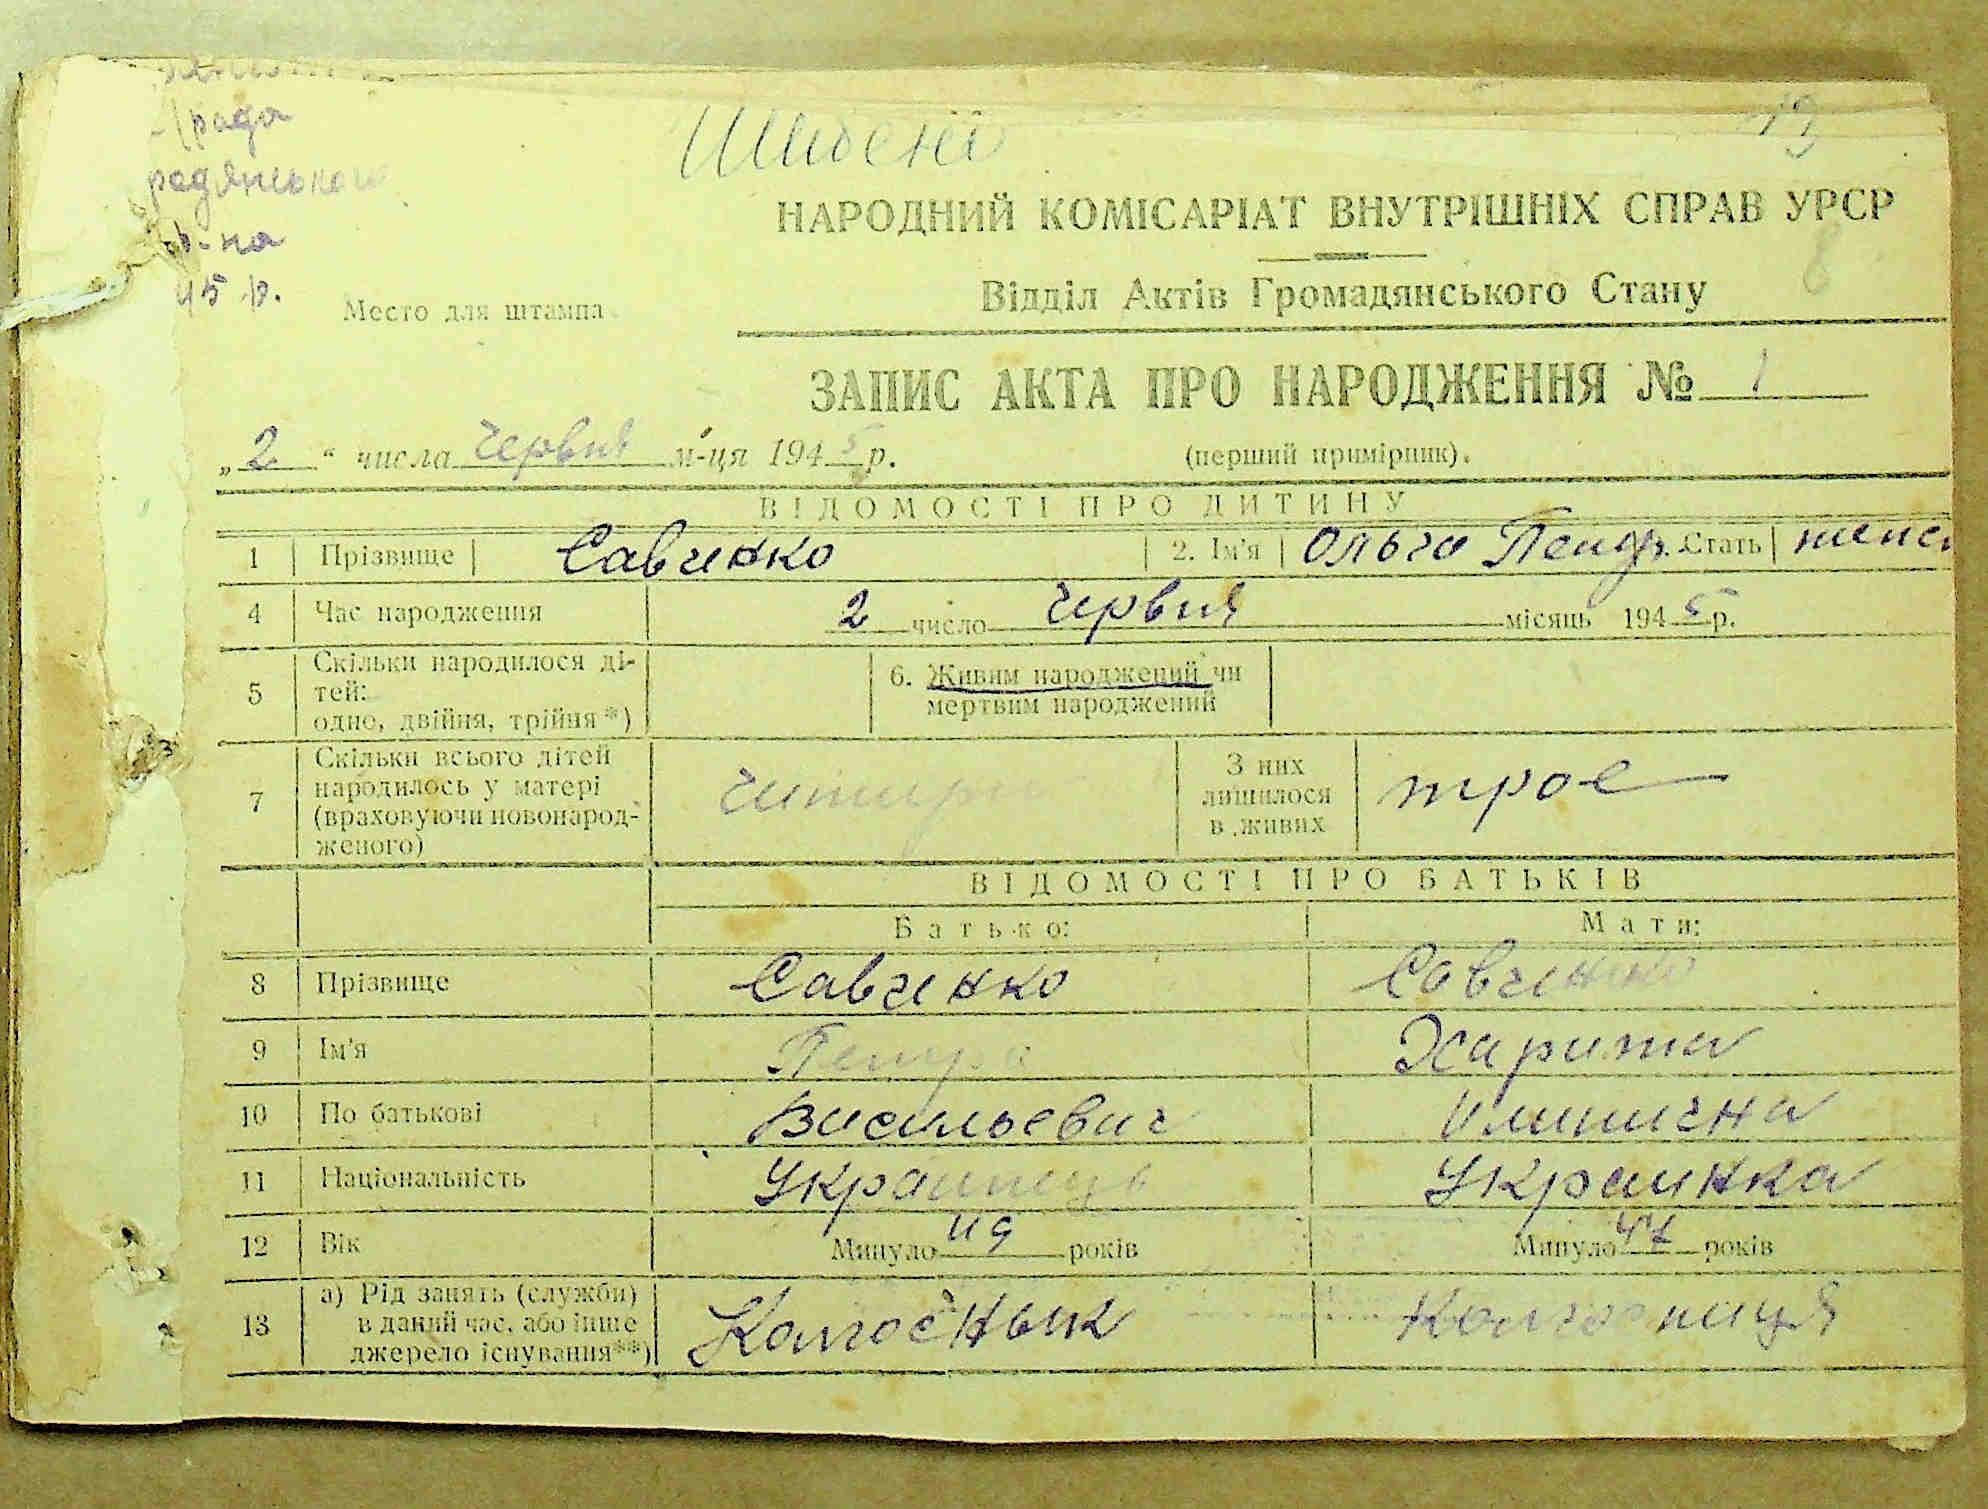 с/рада
радянського
р-на
45 р.
Шибене
19
НАРОДНИЙ КОМІСАРІАТ ВНУТРІШНІХ СПРАВ УРСР
8
Відділ Актів Громадянського Стану
Место для штампа
ЗАПИС АКТА ПРО НАРОДЖЕННЯ № 1
„2“ числа Червня м-ця 1945 р. (перший примірник).
ВІДОМОСТІ ПРО ДИТИНУ
1 Прізвище Савченко 2. Ім'я Ольга Петр. Стать женс
4 Час народження 2 число Червня місяць 1945 р.
5 Скільки народилося ді-
тей:
одно, двійня, трійня*)
6. Живим народжений чи
мертвим народжений
7 Скільки всього дітей
народилось у матері
(враховуючи новонарод-
женого)
читири
З них
лишилося
в живих
трое
ВІДОМОСТІ ПРО БАТЬКІВ
Батько: Мати:
8 Прізвище Савченко Савченко
9 Ім'я Петро Харита
10 По батькові Васильевич Илинична
11 Національність Украинець Украинка
12 Вік Минуло 49 років Минуло 47 років
13 а) Рід занять (служби)
в даний час, або інше
джерело існування**)
Колгосник Колгосниця